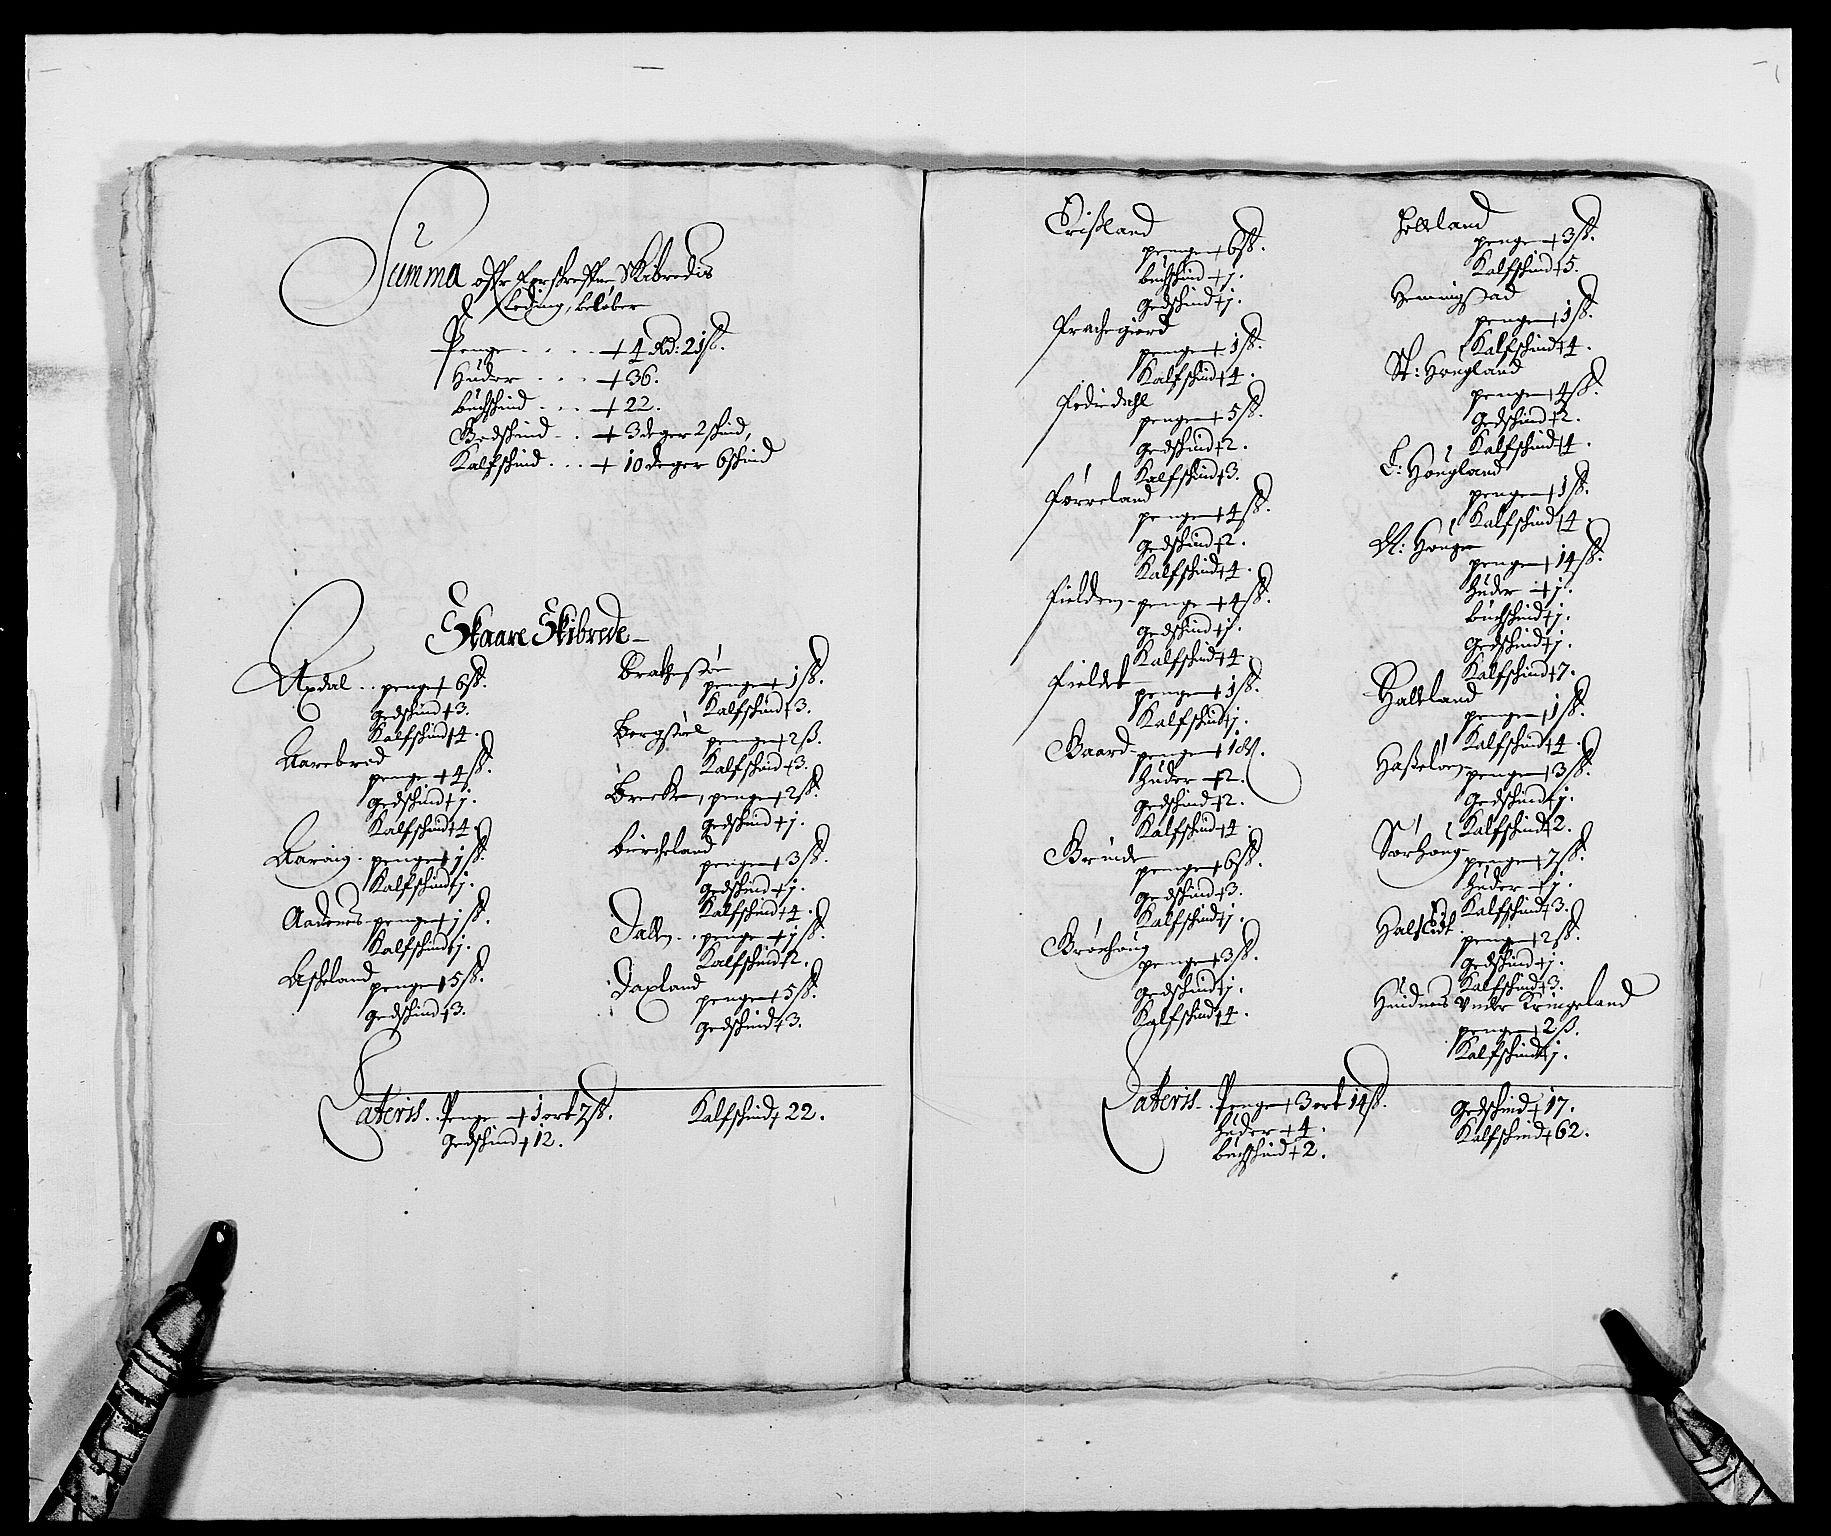 Summa offr Skibredis
Leding, beløber
Penge . . . . . + 4 Rd: 21 ß.
Huder . . . + 36.
buchschind . . . + 22.
Gedschind . . + 3 deger 2 schind,
Kalfschind . . . + 10 deger 6 schind
Skaare Skibrede
Axdal . . penge + 6 ß.
gedschind + 3.
Kalfschind + 4.
Aarebrod
penge + 4 ß.
gedschind + j.
Kalfschind + 4.
Aaraig . penge + j ß.
Kalfschind + j.
Aadenes penge + j ß.
Kalfschind + j.
Ascheland penge + 5 ß.
gedschind + 3.
penge + 1 ß.
Kalfschind + 3.
penge + 2 ß.
Kalfschind + 3.
Brecke, penge + 2 ß.
gedschind + j.
burcheland
penge + 3 ß.
gedschind + j.
Kalfschind + 4.
Dallen . . penge + j ß.
Kalfschind + 2.
Daxland
penge + 5 ß.
gedschind + 3.
Lateris . . Penge + 1 ort 7 ß. Kalfschind + 22.
gedschind + 12.
Erißland
penge + 6 ß.
buchschind + j.
gedschind + j.
frachegierd
penge + 1 ß.
Kalfschind + 4.
fodiedahl
penge + 5 ß.
gedschind + 2.
Kalfschind + 3.
førreland
penge + 4 ß.
gedschind + 2.
Kalfschind + 4.
fielden penge + 4 ß.
gedschind + j.
Kalfschind + 4.
fieldet
penge + 1 ß.
Kalfschind + j.
Gaard penge + 18 ß.
huder + 2.
gedschind + 2.
Kalfschind + 4.
Grinde
penge + 6 ß.
gedschind + 3.
Kalfschind + j.
Grønhoug
penge + 3 ß.
gedschind + j.
Kalfschind + 4.
Lateris . . Penge + 3 ort 14 ß.
huder + 4.
buchschind + 2.
helleland
penge + 3 ß.
Kalfschind + 5.
Hemingstad
penge + 1 ß.
Kalfschind + 4.
St: Hougland
penge + 4 ß.
gedschind + 2.
Kalfschind + 4.
L: Hougland
penge + 1 ß.
Kalfschind + 4.
penge + 14 ß.
huder + j.
buchschind + j.
gedschind + j.
Kalfschind + 7.
Halleland
penge + 1 ß.
Kalfschind + 4.
Haßeloen penge + 3 ß.
gedschind + j.
Kalfschind + 2.
Sørhoug
penge + 7 ß.
huder + j.
Kalfschind + 3.
penge + 2 ß.
gedschind + j.
Kalfschind + 3.
under Kringeland
penge + 2 ß.
Kalfschind + j.
gedschind + 17.
Kalfschind + 62.